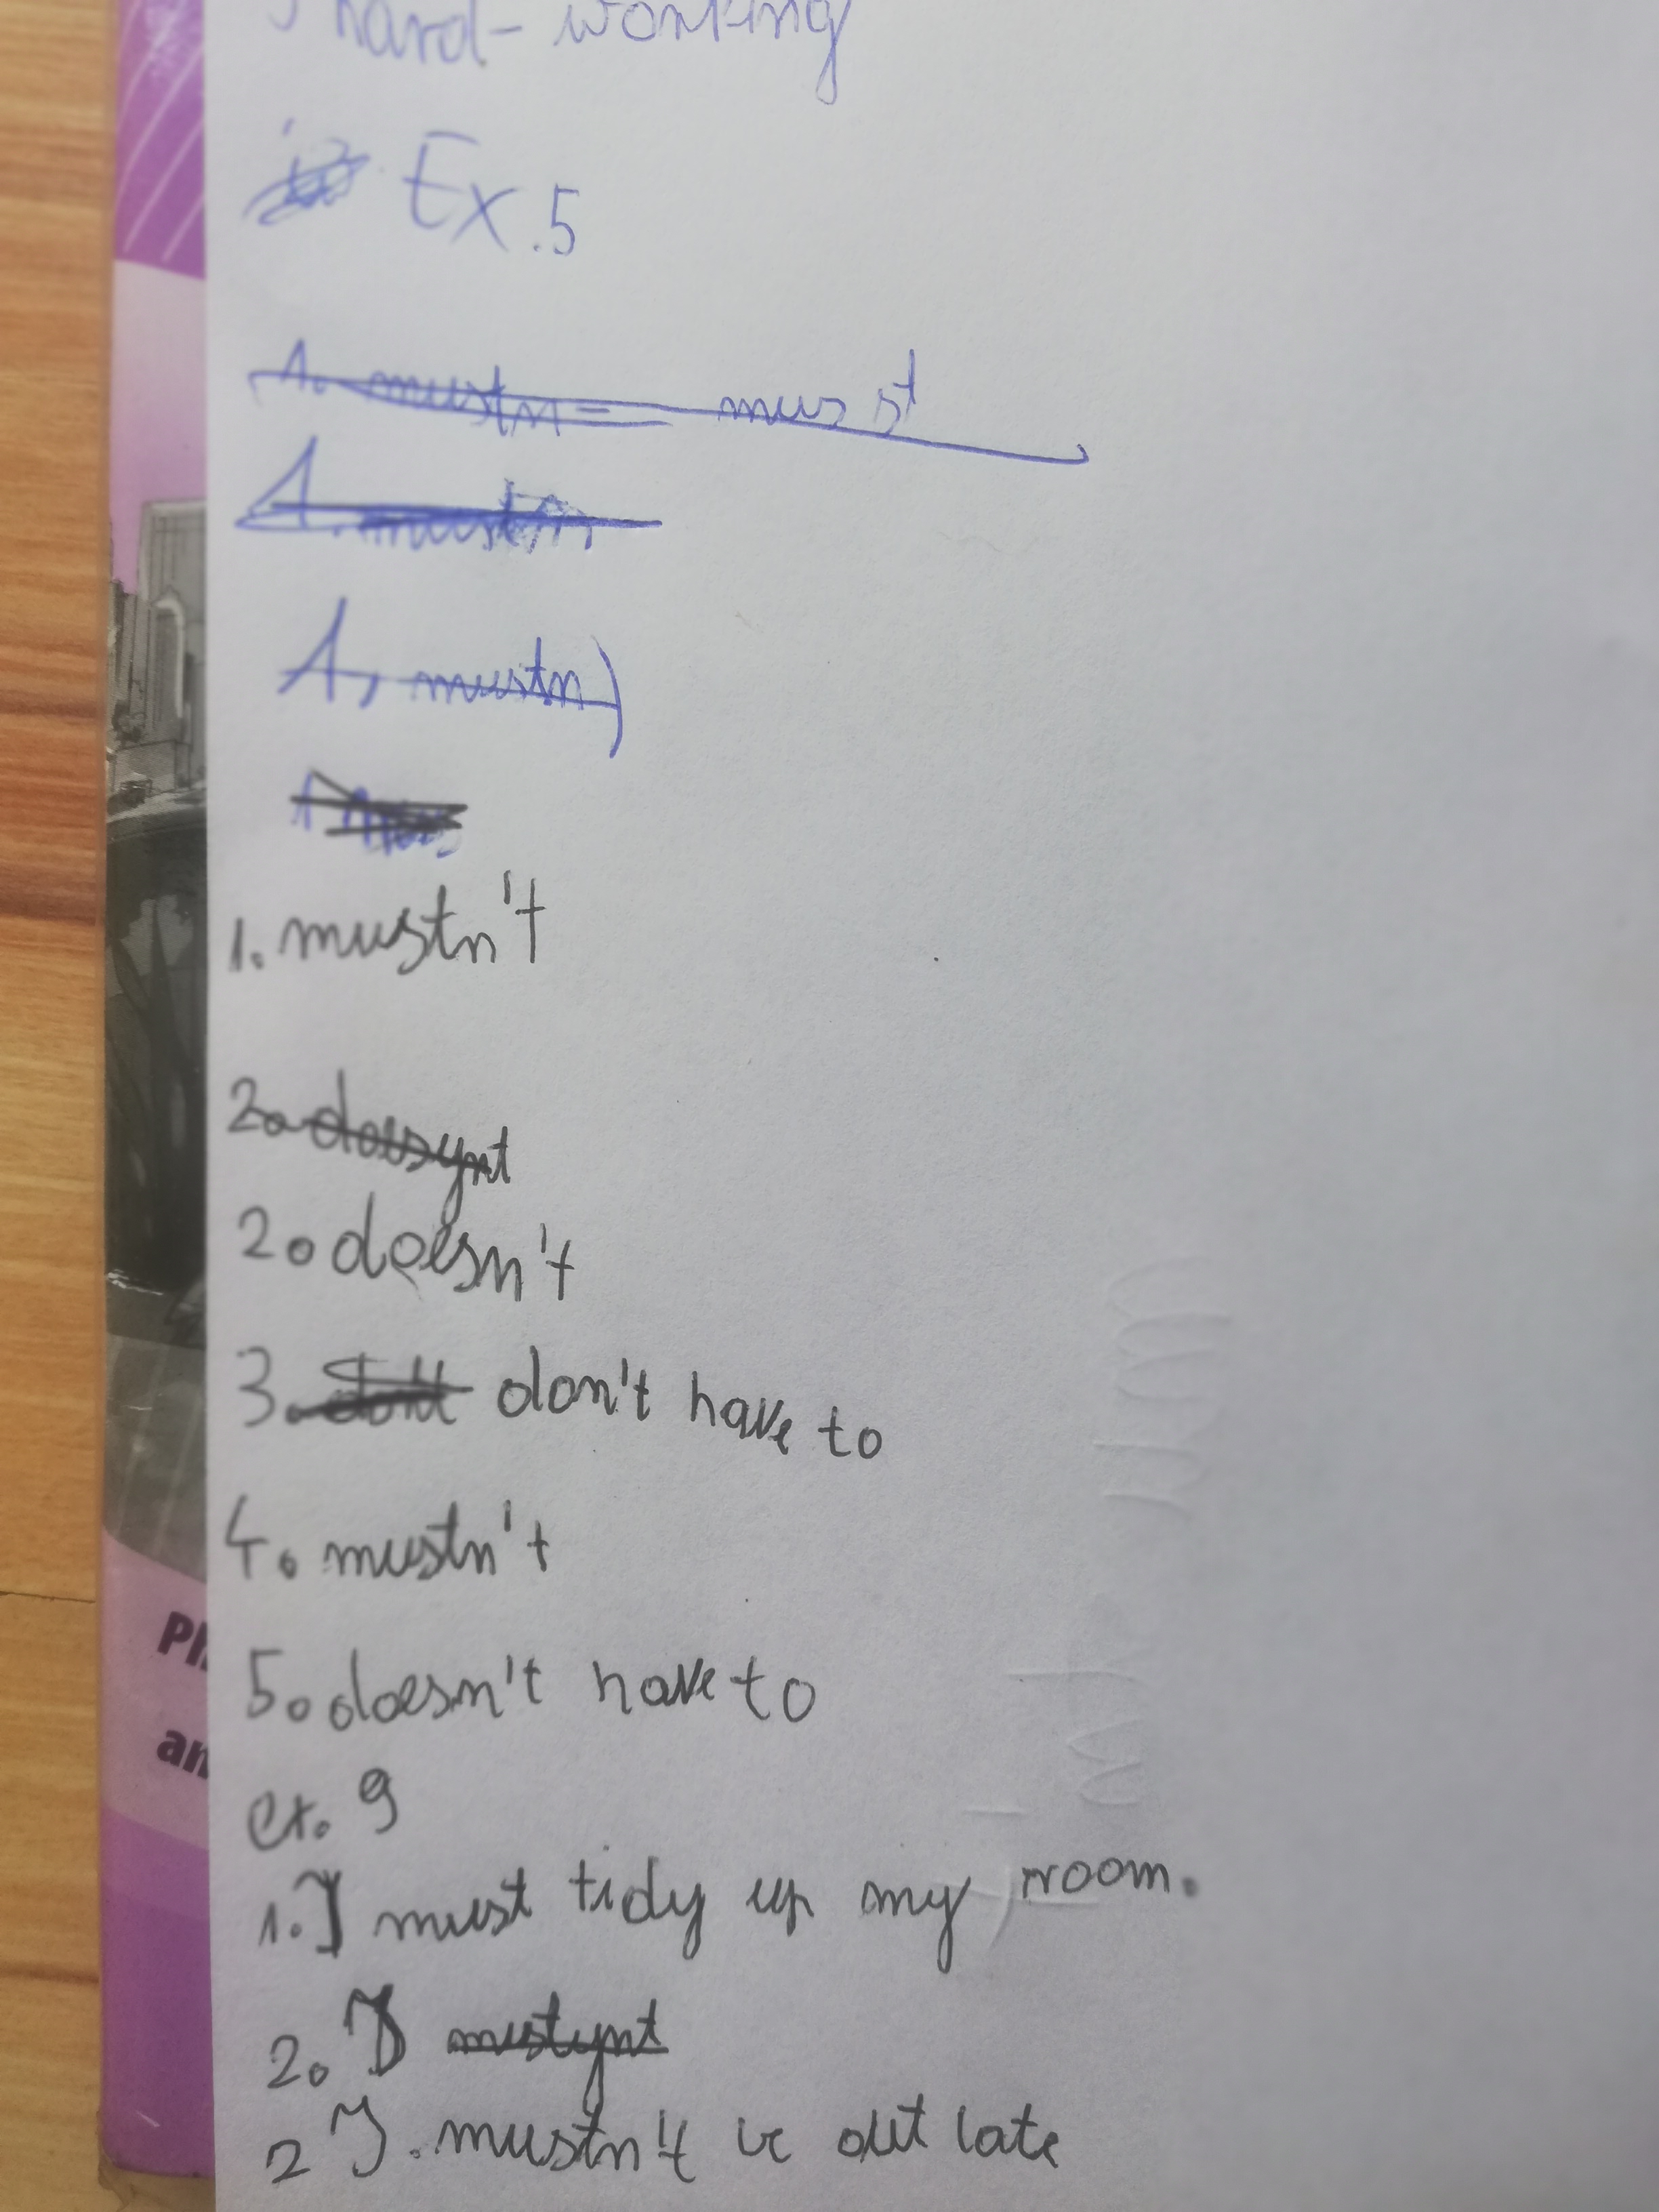 hard-working
Ex.5
1. mustn must
1. mustn
1, mustn
1. mustn't
2. doesynt
2. doesn't
3. dont don't have to
4. mustn't
5. doesn't have to
Ph
an
ex. 9
1. I must tidy up my room.
2. I mustynt
2 I. mustn't be out late